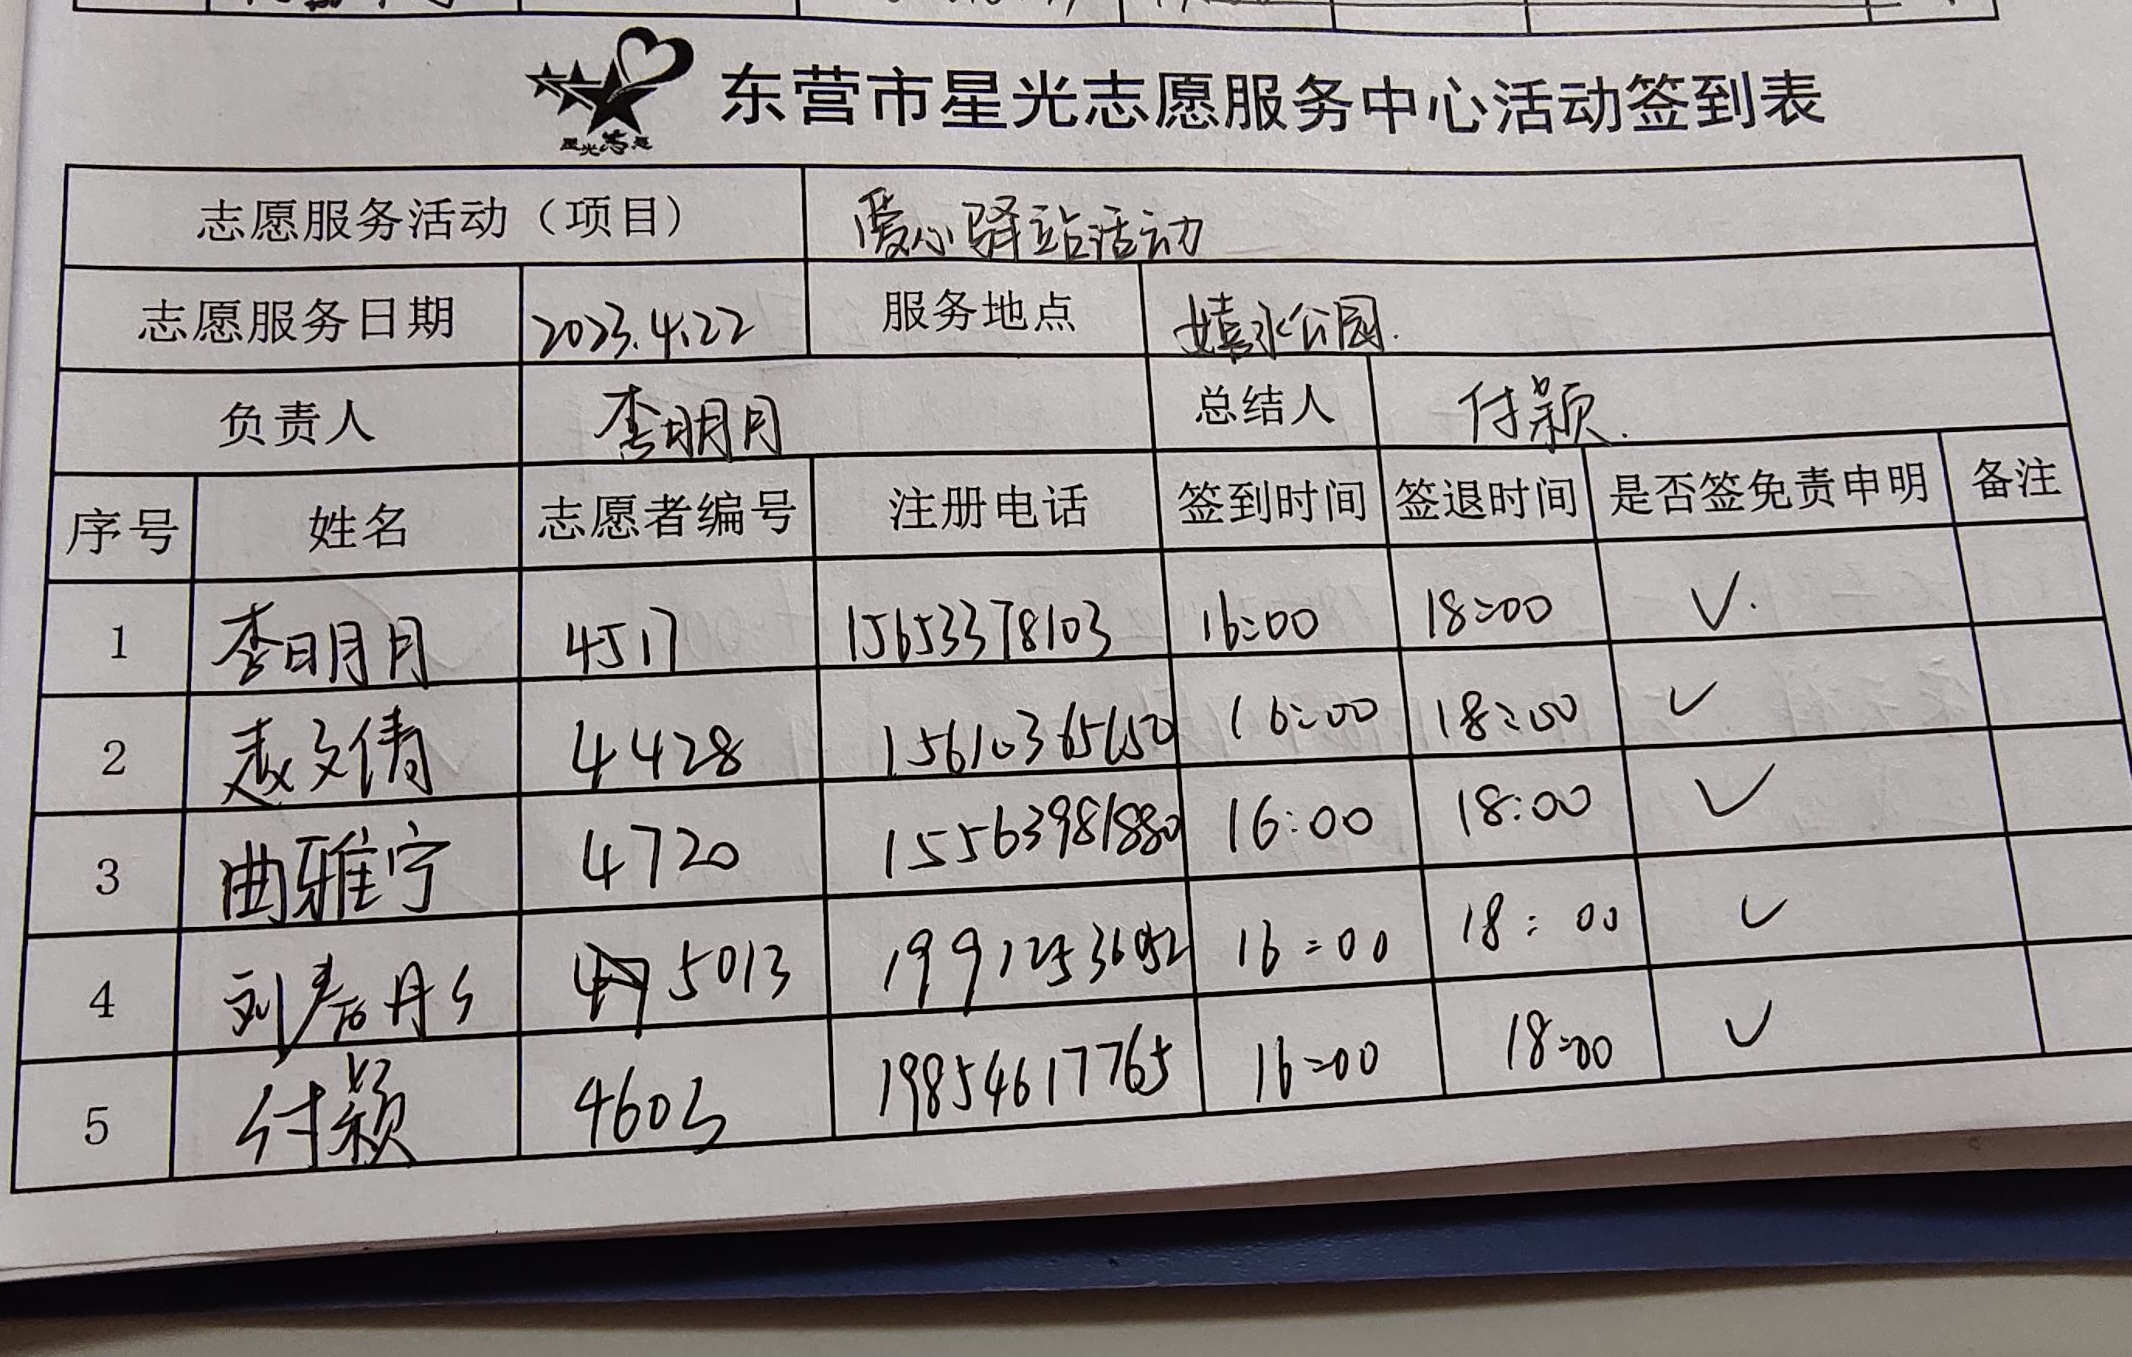 星光志愿
东营市星光志愿服务中心活动签到表
志愿服务活动（项目） 爱心驿站活动
志愿服务日期 2023.4.22 服务地点 嬉水公园.
负责人 李明月 总结人 付颖.
序号 姓名 志愿者编号 注册电话 签到时间 签退时间 是否签免责申明 备注
1 李明月 4517 15653378103 16:00 18:00 ✓.
2 赵文倩 4428 15610365650 16:00 18:00 ✓
3 曲雅宁 4720 15563981880 16:00 18:00 ✓
4 刘 5013 16:00 18:00 ✓
5 付颖 4603 19854617765 16:00 18:00 ✓